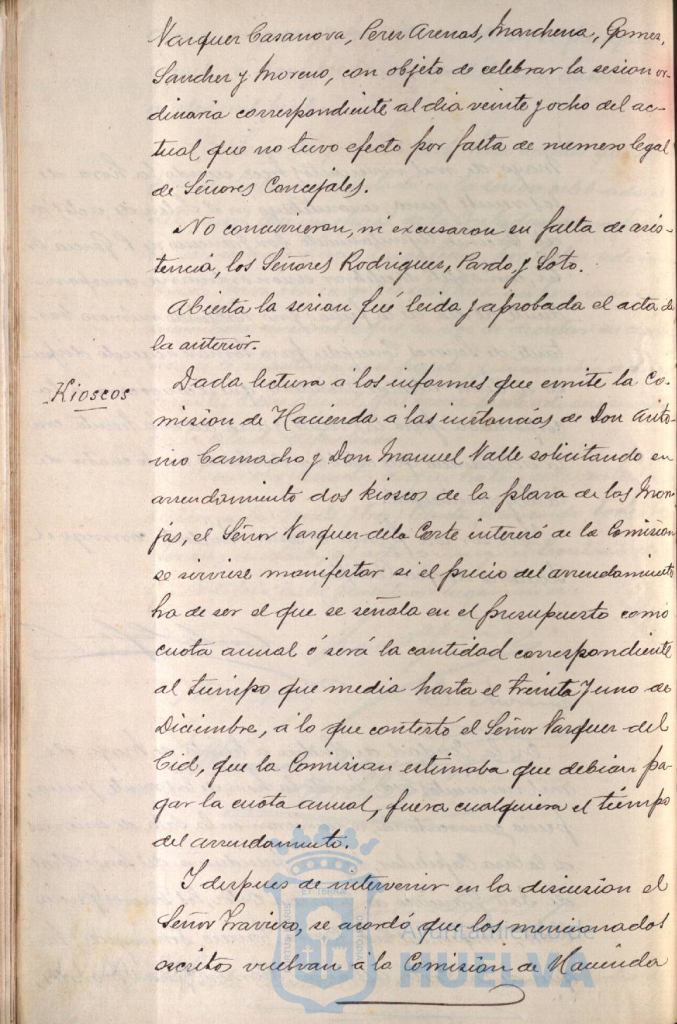 Vazquez Casanova, Perez Arenas, Marchena, Gomez,
Sanchez y Moreno, con objeto de celebrar la sesion or-
dinaria correspondiente al dia veinte y ocho del ac-
tual que no tuvo efecto por falta de numero legal
de Señores Concejales.
No concurrieron, ni excusaron su falta de asis-
tencia, los Señores Rodriguez, Pardo y Soto.
Abierta la sesion fué leida y aprobada el acta de
la anterior.
Kioscos
Dada lectura á los informes que emite la Co-
mision de Hacienda á las instancias de Don Anto-
nio Camacho y Don Manuel Valle solicitando en
arrendamiento dos kioscos de la plaza de las Mon-
jas, el Señor Vazquez de la Corte interesó de la Comision
se sirviese manifestar si el precio del arrendamiento
ha de ser el que se señala en el presupuesto como
cuota anual ó será la cantidad correspondiente
al tiempo que media hasta el treinta y uno de
Diciembre, á lo que contestó el Señor Vazquez del
Cid, que la Comision estimaba que debian pa-
gar la cuota anual, fuera cualquiera el tiempo
del arrendamiento.
Y despues de intervenir en la discusion el
Señor Travieso, se acordó que los mencionados
escritos vuelvan á la Comision de Hacienda
Ayuntamiento de
HUELVA